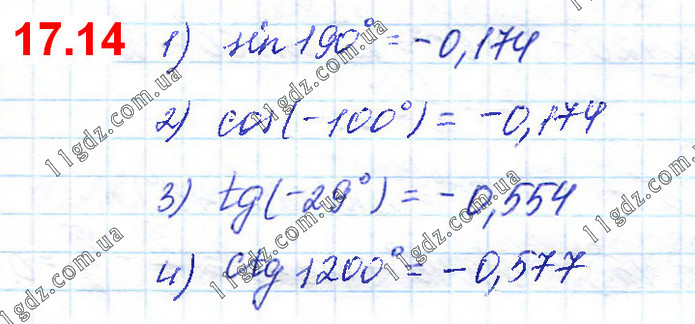 17.14 1) sin 190° = -0,174
2) cos(-100°) = -0,174
3) tg(-29°) = -0,554
4) ctg 1200° = -0,577
11gdz.com.ua
11gdz.com.ua
11gdz.com.ua
11gdz.com.ua
11gdz.com.ua
11gdz.com.ua